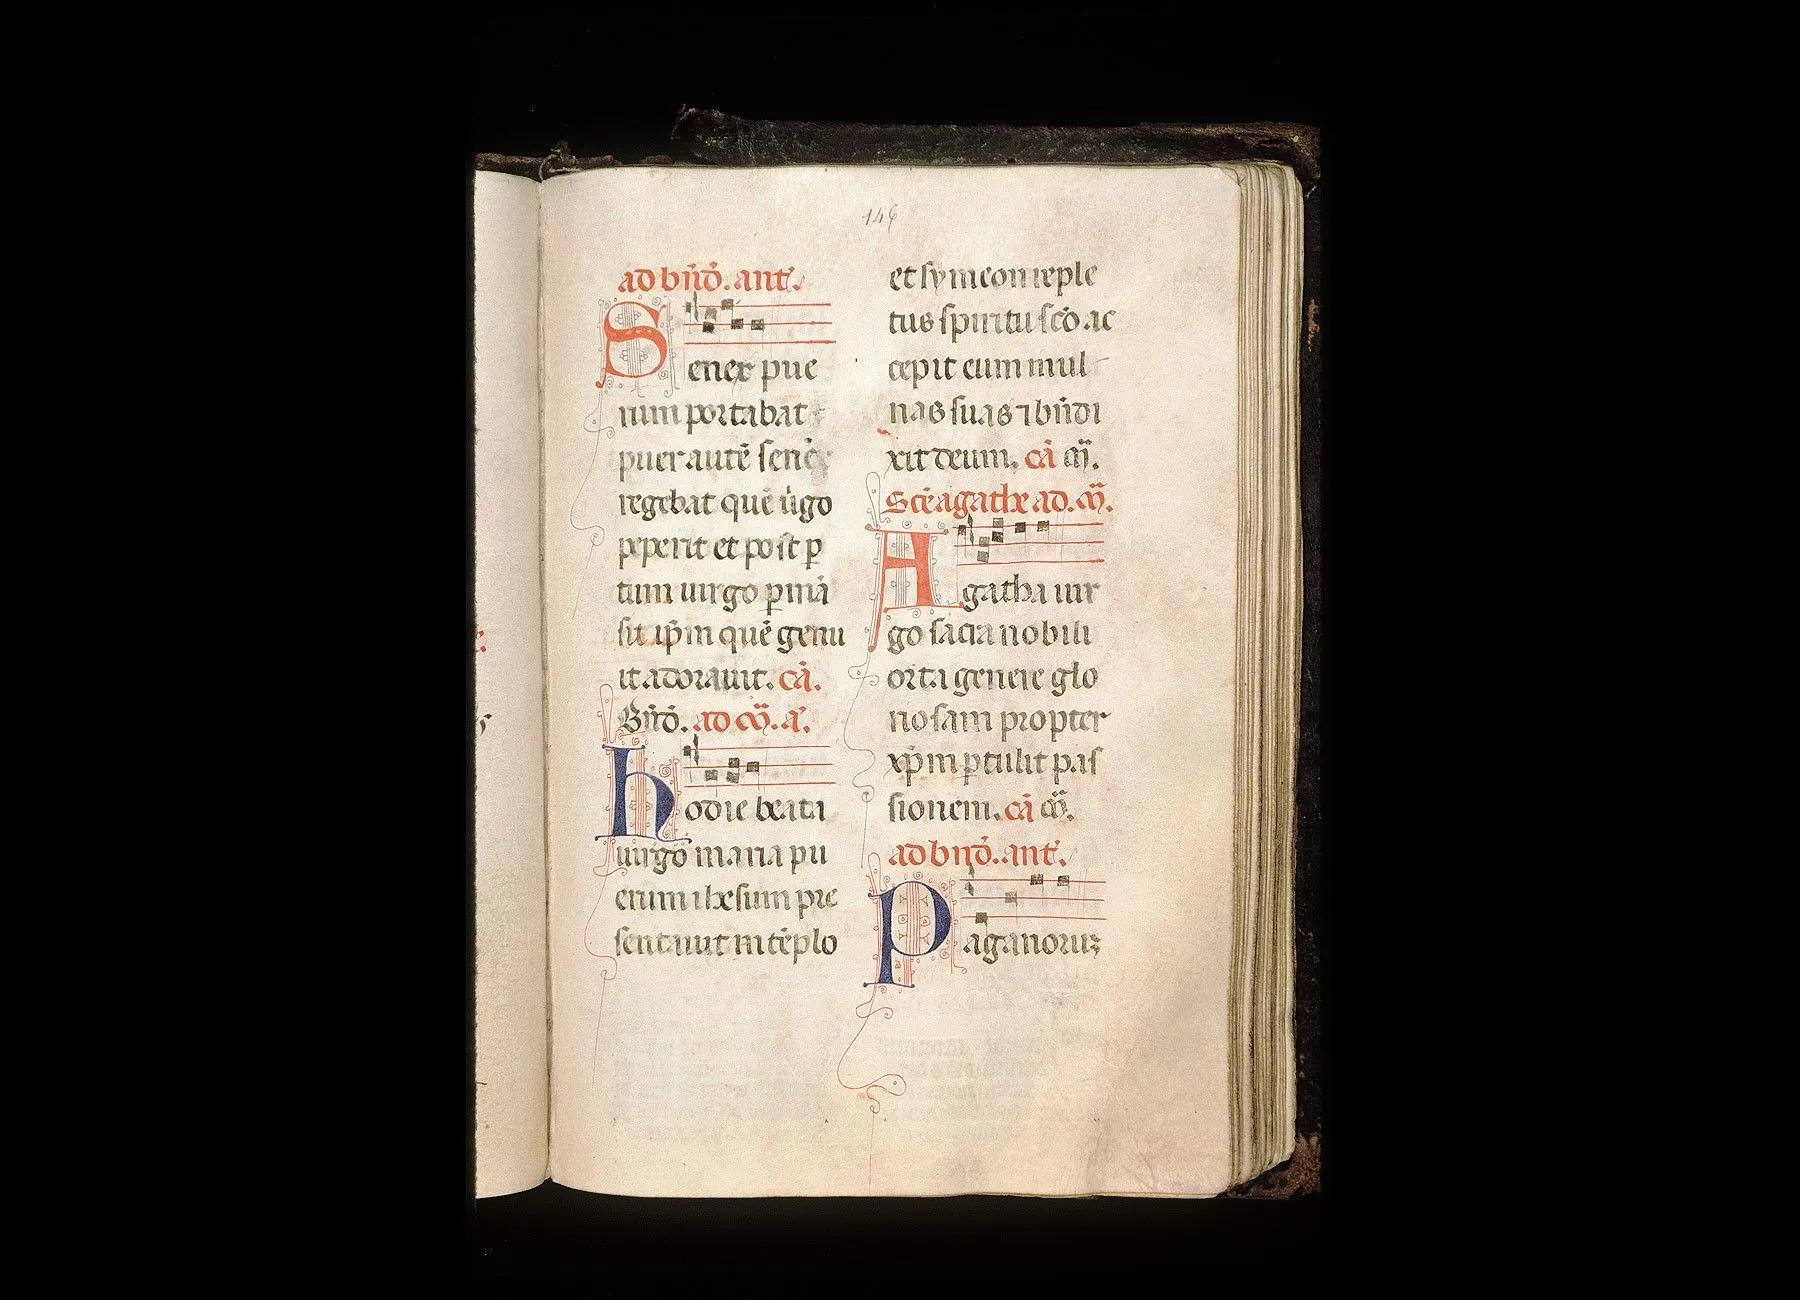 146
ad bñd̄. ant̄.
Senex pue
rum portabat
puer autē senē
regebat quē ũgo
peperit et post p
tum uirgo ꝑmā
sit ip̄m quē genu
it adorauit. cā.
Bñd̄. ad m̄. a.
hodie beata
uirgo maria pu
erum ihesum pre
sentauit in tēplo
et symeon reple
tus spiritu scō ac
cepit eum in ul
nas suas ⁊ bñdi
xit deum. cā m̄.
Scē agathe ad. m̄.
Agatha uir
go sacra nobili
orta genere glo
riosam propter
xp̄m ꝑtulit pas
sionem. cā m̄.
ad bñd̄. ant̄.
Paganoruꝫ